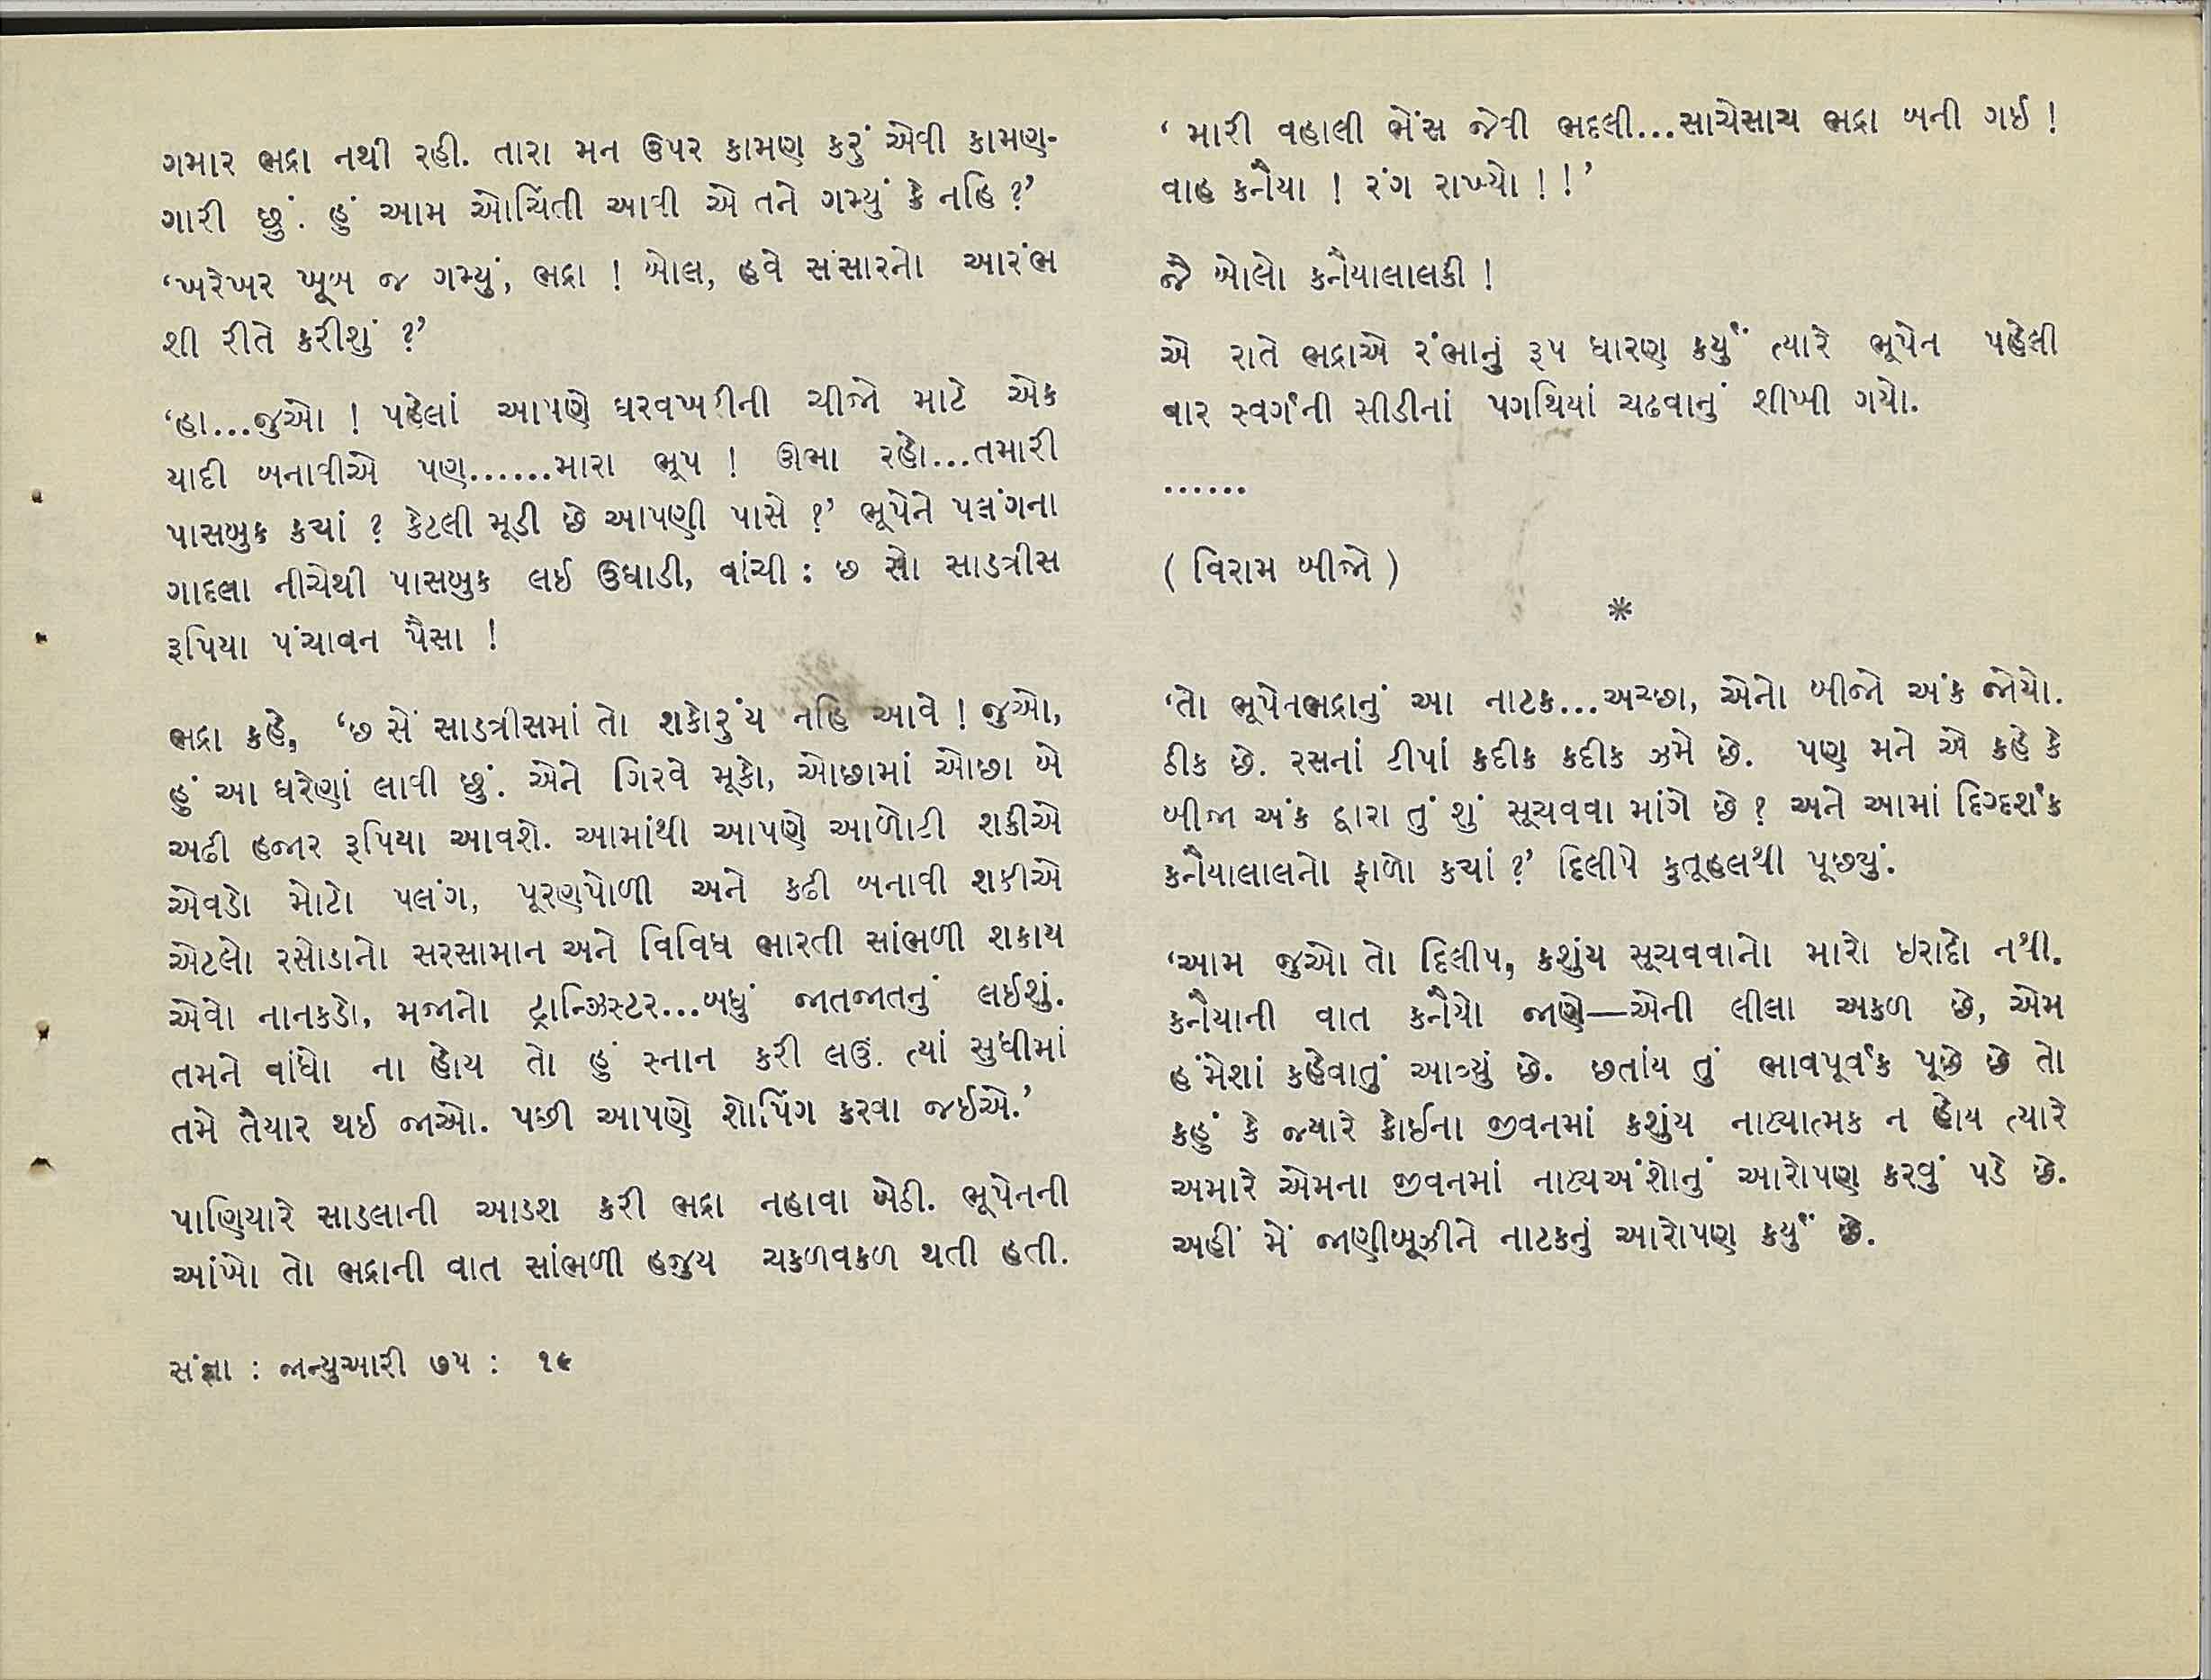 ગમાર ભદ્રા નથી રહી. તારા મન ઉપર કામણ કરું એવી કામણ-
ગારી છું. હું આમ ઓચિંતી આવી એ તને ગમ્યું કે નહિ ?’
‘ખરેખર ખૂબ જ ગમ્યું, ભદ્રા ! બોલ, હવે સંસારનો આરંભ
શી રીતે કરીશું ?’
‘હા...જુઓ ! પહેલાં આપણે ઘરવખરીની ચીજો માટે એક
યાદી બનાવીએ પણ......મારા ભૂપ ! ઊભા રહો...તમારી
પાસબુક કયાં ? કેટલી મૂડી છે આપણી પાસે ?’ ભૂપેને પલંગના
ગાદલા નીચેથી પાસબુક લઈ ઉઘાડી, વાંચી : છ સો સાડત્રીસ
રૂપિયા પંચાવન પૈસા !
ભદ્રા કહે, ‘છ સેં સાડત્રીસમાં તો શકોરુંય નહિ આવે ! જુઓ,
હું આ ઘરેણાં લાવી છું. એને ગિરવે મૂકો, ઓછામાં ઓછા બે
અઢી હજાર રૂપિયા આવશે. આમાંથી આપણે આળોટી શકીએ
એવડો મોટો પલંગ, પૂરણપોળી અને કઢી બનાવી શકીએ
એટલો રસોડાનો સરસામાન અને વિવિધ ભારતી સાંભળી શકાય
એવો નાનકડો, મજાનો ટ્રાન્ઝિસ્ટર...બધું જાતજાતનું લઈશું.
તમને વાંધો ના હોય તો હું સ્નાન કરી લઉં. ત્યાં સુધીમાં
તમે તૈયાર થઈ જાઓ. પછી આપણે શોપિંગ કરવા જઈએ.’
પાણિયારે સાડલાની આડશ કરી ભદ્રા નહાવા બેઠી. ભૂપેનની
આંખો તો ભદ્રાની વાત સાંભળી હજુય ચકળવકળ થતી હતી.
સંજ્ઞા : જાન્યુઆરી ૭૫ : ૧૯
‘ મારી વહાલી ભેંસ જેવી ભદલી...સાચેસાચ ભદ્રા બની ગઈ !
વાહ કનૈયા ! રંગ રાખ્યો ! !’
જૈ બોલો કનૈયાલાલકી !
એ રાતે ભદ્રાએ રંભાનું રૂપ ધારણ કર્યું ત્યારે ભૂપેન પહેલી
વાર સ્વર્ગની સીડીનાં પગથિયાં ચઢવાનું શીખી ગયો.
......
( વિરામ બીજો )
*
‘તો ભૂપેનભદ્રાનું આ નાટક...અચ્છા, એનો બીજો અંક જોયો.
ઠીક છે. રસનાં ટીપાં કદીક કદીક ઝમે છે. પણ મને એ કહે કે
બીજા અંક દ્વારા તું શું સૂચવવા માંગે છે ? અને આમાં દિગ્દર્શક
કનૈયાલાલનો ફાળો કયાં ?’ દિલીપે કુતૂહલથી પૂછ્યું.
‘આમ જુઓ તો દિલીપ, કશુંય સૂચવવાનો મારો ઇરાદો નથી.
કનૈયાની વાત કનૈયો જાણે—એની લીલા અકળ છે, એમ
હંમેશાં કહેવાતું આવ્યું છે. છતાંય તું ભાવપૂર્વક પૂછે છે તો
કહું કે જ્યારે કોઈના જીવનમાં કશુંય નાટ્યાત્મક ન હોય ત્યારે
અમારે એમના જીવનમાં નાટ્યઅંશોનું આરોપણ કરવું પડે છે.
અહીં મેં જાણીબૂઝીને નાટકનું આરોપણ કર્યું છે.